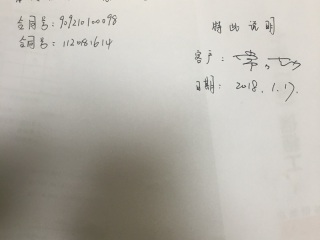 合同号：90921010098
合同号：112081614
特此说明
客户：
日期：2018.1.17.